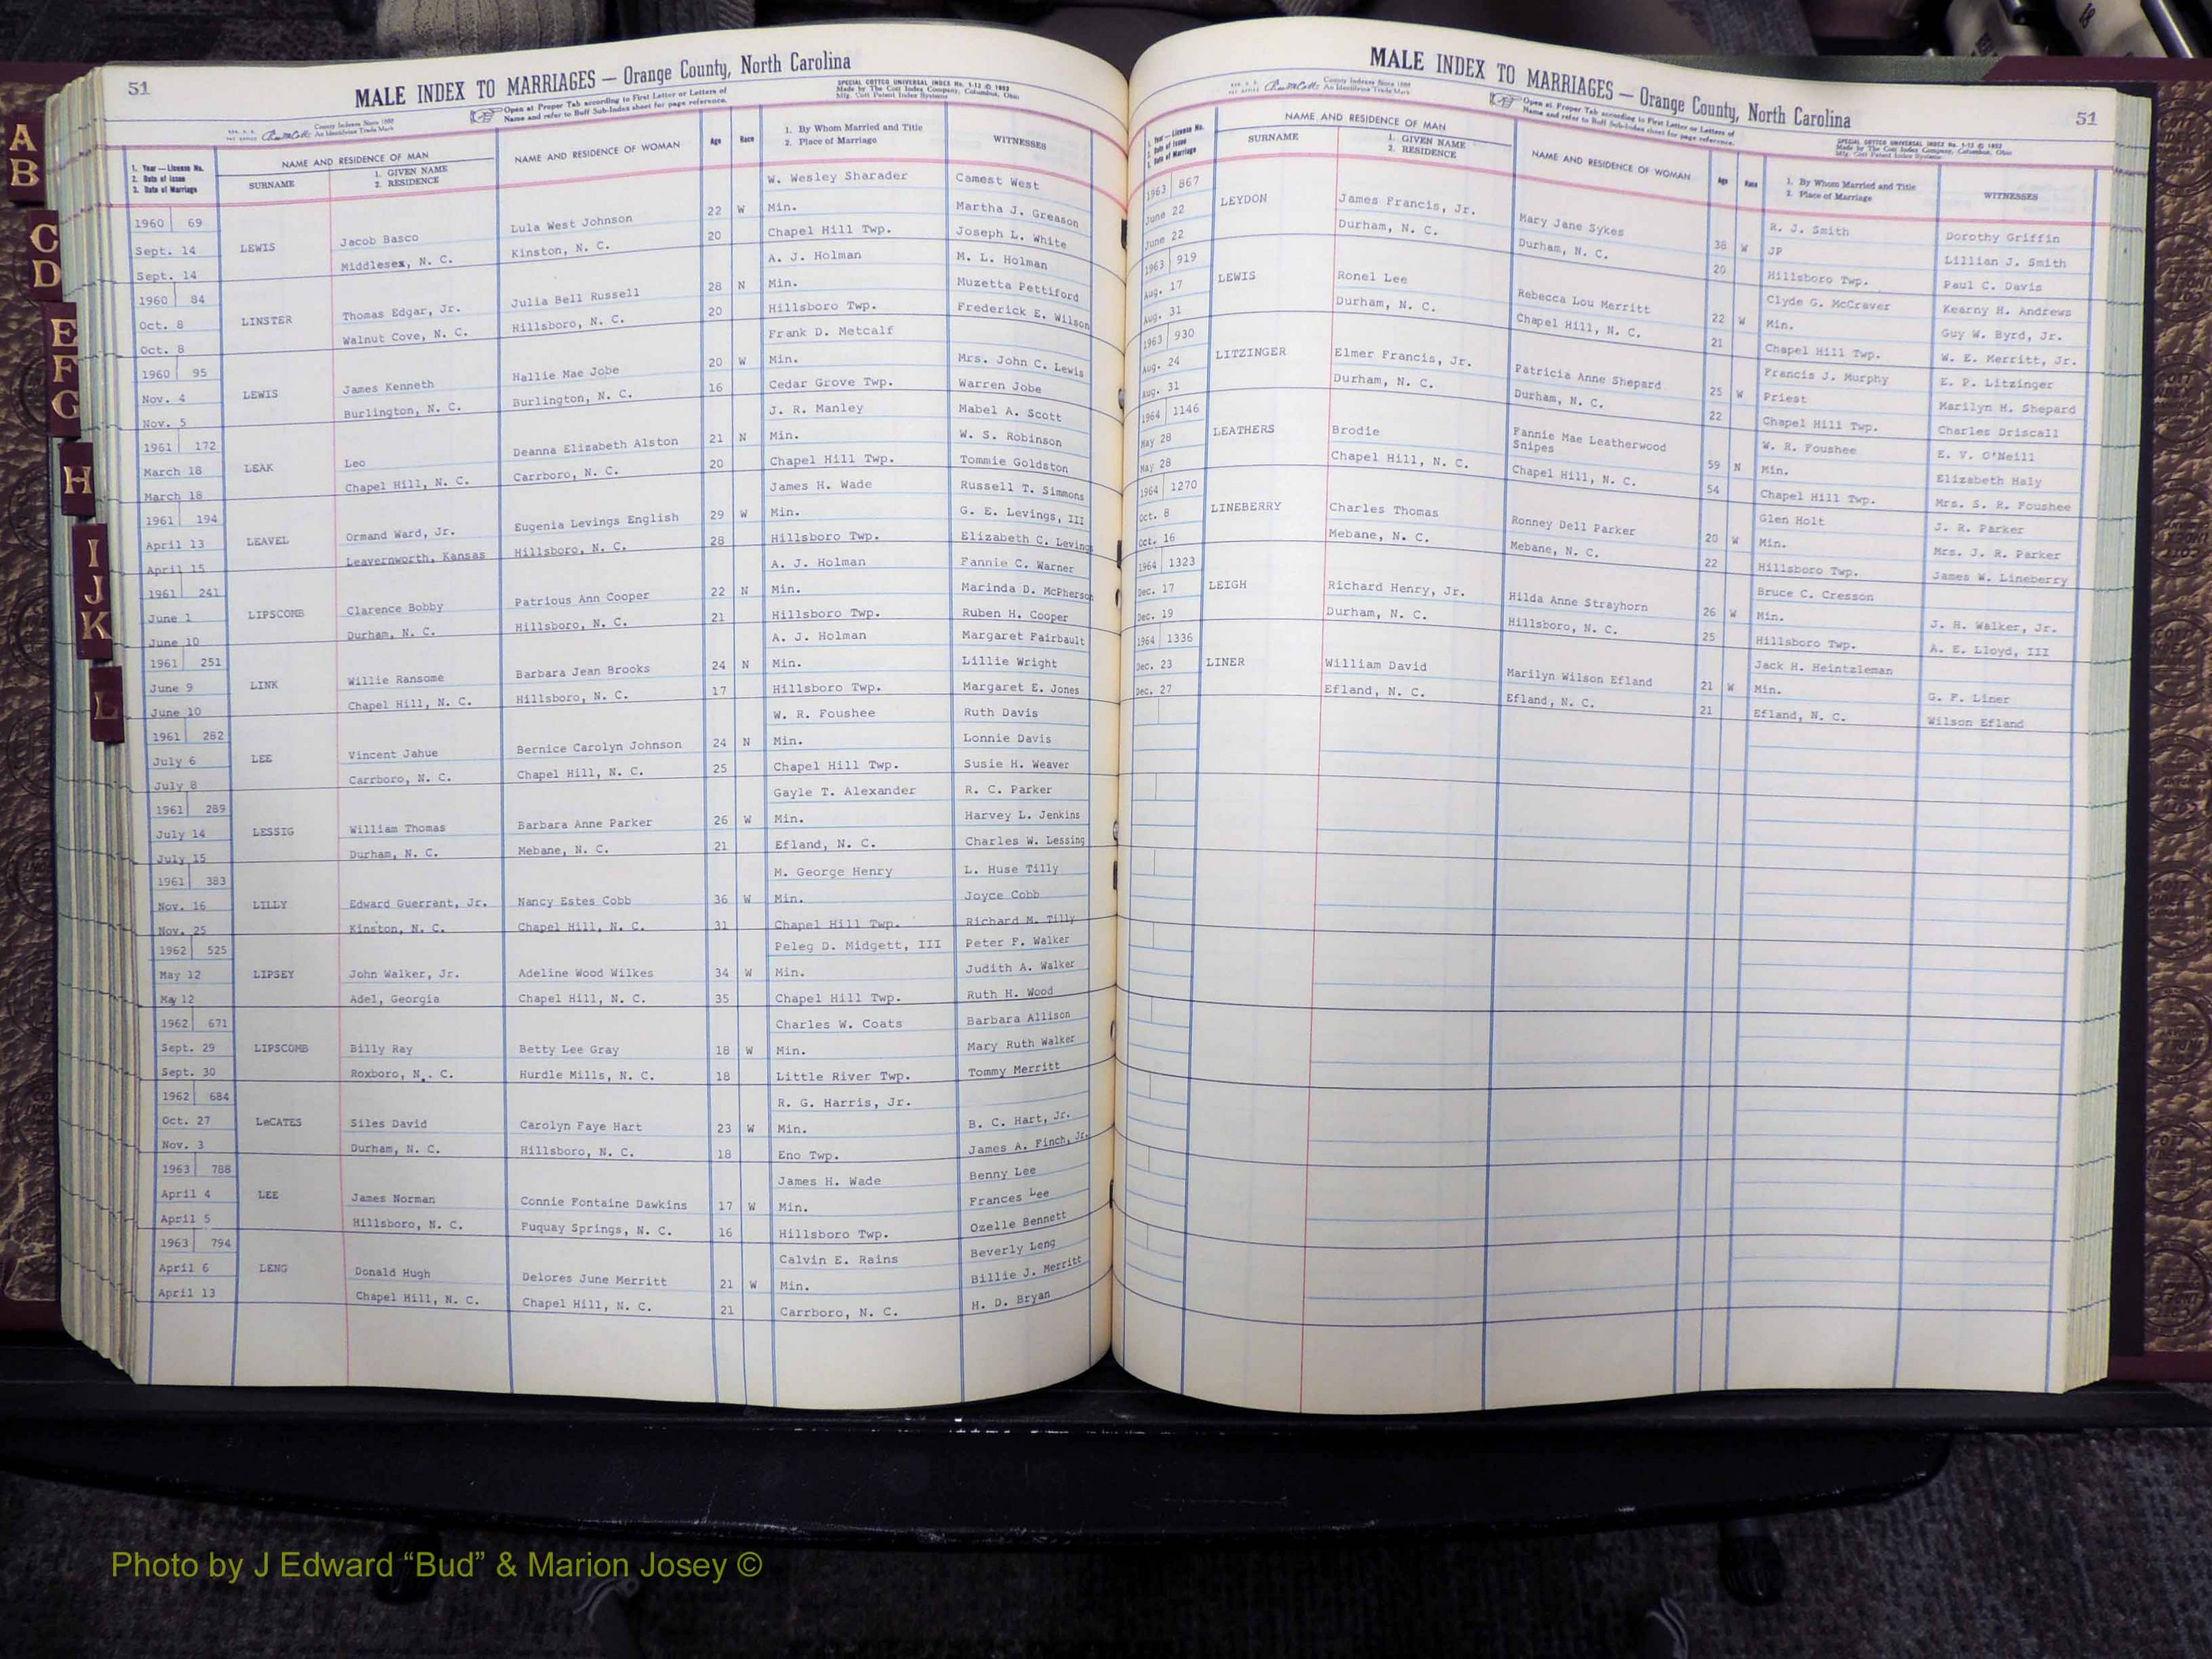 51
MALE INDEX TO MARRIAGES — Orange County, North Carolina
Open at Proper Tab according to First Letter or Letters of
Name and refer to Buff Sub-Index sheet for page reference.
SPECIAL COTTCO UNIVERSAL INDEX No. 1-12 © 1952
Made by The Cott Index Company, Columbus, Ohio
Mfg. Cott Patent Index Systems
County Indexes Since 1888
An Identifying Trade Mark
1. Year — License No.
2. Date of Issue
3. Date of Marriage
NAME AND RESIDENCE OF MAN
SURNAME
1. GIVEN NAME
2. RESIDENCE
NAME AND RESIDENCE OF WOMAN
Age
Race
1. By Whom Married and Title
2. Place of Marriage
WITNESSES
1960 69 W. Wesley Sharader Camest West
Sept. 14 LEWIS Jacob Basco Lula West Johnson 22 W Min. Martha J. Greason
Sept. 14 Middlesex, N. C. Kinston, N. C. 20 Chapel Hill Twp. Joseph L. White
1960 84 A. J. Holman M. L. Holman
Oct. 8 LINSTER Thomas Edgar, Jr. Julia Bell Russell 28 N Min. Muzetta Pettiford
Oct. 8 Walnut Cove, N. C. Hillsboro, N. C. 20 Hillsboro Twp. Frederick E. Wilson
1960 95 Frank D. Metcalf
Nov. 4 LEWIS James Kenneth Hallie Mae Jobe 20 W Min. Mrs. John C. Lewis
Nov. 5 Burlington, N. C. Burlington, N. C. 16 Cedar Grove Twp. Warren Jobe
1961 172 J. R. Manley Mabel A. Scott
March 18 LEAK Leo Deanna Elizabeth Alston 21 N Min. W. S. Robinson
March 18 Chapel Hill, N. C. Carrboro, N. C. 20 Chapel Hill Twp. Tommie Goldston
1961 194 James H. Wade Russell T. Simmons
April 13 LEAVEL Ormand Ward, Jr. Eugenia Levings English 29 W Min. G. E. Levings, III
April 15 Leavernworth, Kansas Hillsboro, N. C. 28 Hillsboro Twp. Elizabeth C. Levings
1961 241 A. J. Holman Fannie C. Warner
June 1 LIPSCOMB Clarence Bobby Patrious Ann Cooper 22 N Min. Marinda D. McPherson
June 10 Durham, N. C. Hillsboro, N. C. 21 Hillsboro Twp. Ruben H. Cooper
1961 251 A. J. Holman Margaret Fairbault
June 9 LINK Willie Ransome Barbara Jean Brooks 24 N Min. Lillie Wright
June 10 Chapel Hill, N. C. Hillsboro, N. C. 17 Hillsboro Twp. Margaret E. Jones
1961 282 W. R. Foushee Ruth Davis
July 6 LEE Vincent Jahue Bernice Carolyn Johnson 24 N Min. Lonnie Davis
July 8 Carrboro, N. C. Chapel Hill, N. C. 25 Chapel Hill Twp. Susie H. Weaver
1961 289 Gayle T. Alexander R. C. Parker
July 14 LESSIG William Thomas Barbara Anne Parker 26 W Min. Harvey L. Jenkins
July 15 Durham, N. C. Mebane, N. C. 21 Efland, N. C. Charles W. Lessing
1961 383 M. George Henry L. Huse Tilly
Nov. 16 LILLY Edward Guerrant, Jr. Nancy Estes Cobb 36 W Min. Joyce Cobb
Nov. 25 Kinston, N. C. Chapel Hill, N. C. 31 Chapel Hill Twp. Richard M. Tilly
1962 525 Peleg D. Midgett, III Peter F. Walker
May 12 LIPSEY John Walker, Jr. Adeline Wood Wilkes 34 W Min. Judith A. Walker
May 12 Adel, Georgia Chapel Hill, N. C. 35 Chapel Hill Twp. Ruth H. Wood
1962 671 Charles W. Coats Barbara Allison
Sept. 29 LIPSCOMB Billy Ray Betty Lee Gray 18 W Min. Mary Ruth Walker
Sept. 30 Roxboro, N. C. Hurdle Mills, N. C. 18 Little River Twp. Tommy Merritt
1962 684 R. G. Harris, Jr.
Oct. 27 LeCATES Siles David Carolyn Faye Hart 23 W Min. B. C. Hart, Jr.
Nov. 3 Durham, N. C. Hillsboro, N. C. 18 Eno Twp. James A. Finch, Jr.
1963 788 James H. Wade Benny Lee
April 4 LEE James Norman Connie Fontaine Dawkins 17 W Min. Frances Lee
April 5 Hillsboro, N. C. Fuquay Springs, N. C. 16 Hillsboro Twp. Ozelle Bennett
1963 794 Calvin E. Rains Beverly Leng
April 6 LENG Donald Hugh Delores June Merritt 21 W Min. Billie J. Merritt
April 13 Chapel Hill, N. C. Chapel Hill, N. C. 21 Carrboro, N. C. H. D. Bryan
MALE INDEX TO MARRIAGES — Orange County, North Carolina
51
County Indexes Since 1888
An Identifying Trade Mark
Open at Proper Tab according to First Letter or Letters of
Name and refer to Buff Sub-Index sheet for page reference.
SPECIAL COTTCO UNIVERSAL INDEX No. 1-12 © 1952
Made by The Cott Index Company, Columbus, Ohio
Mfg. Cott Patent Index Systems
1. Year — License No.
2. Date of Issue
3. Date of Marriage
NAME AND RESIDENCE OF MAN
SURNAME
1. GIVEN NAME
2. RESIDENCE
NAME AND RESIDENCE OF WOMAN
Age
Race
1. By Whom Married and Title
2. Place of Marriage
WITNESSES
1963 867 R. J. Smith Dorothy Griffin
June 22 LEYDON James Francis, Jr. Mary Jane Sykes 38 W JP Lillian J. Smith
June 22 Durham, N. C. Durham, N. C. 20 Hillsboro Twp. Paul C. Davis
1963 919 Clyde G. McCraver Kearny H. Andrews
Aug. 17 LEWIS Ronel Lee Rebecca Lou Merritt 22 W Min. Guy W. Byrd, Jr.
Aug. 31 Durham, N. C. Chapel Hill, N. C. 21 Chapel Hill Twp. W. E. Merritt, Jr.
1963 930 Francis J. Murphy E. P. Litzinger
Aug. 24 LITZINGER Elmer Francis, Jr. Patricia Anne Shepard 25 W Priest Marilyn H. Shepard
Aug. 31 Durham, N. C. Durham, N. C. 22 Chapel Hill Twp. Charles Driscall
1964 1146 W. R. Foushee E. V. O'Neill
May 28 LEATHERS Brodie Fannie Mae Leatherwood Snipes 59 N Min. Elizabeth Haly
May 28 Chapel Hill, N. C. Chapel Hill, N. C. 54 Chapel Hill Twp. Mrs. S. R. Foushee
1964 1270 Glen Holt J. R. Parker
Oct. 8 LINEBERRY Charles Thomas Ronney Dell Parker 20 W Min. Mrs. J. R. Parker
Oct. 16 Mebane, N. C. Mebane, N. C. 22 Hillsboro Twp. James W. Lineberry
1964 1323 Bruce C. Cresson
Dec. 17 LEIGH Richard Henry, Jr. Hilda Anne Strayhorn 26 W Min. J. H. Walker, Jr.
Dec. 19 Durham, N. C. Hillsboro, N. C. 25 Hillsboro Twp. A. E. Lloyd, III
1964 1336 Jack H. Heintzleman
Dec. 23 LINER William David Marilyn Wilson Efland 21 W Min. G. F. Liner
Dec. 27 Efland, N. C. Efland, N. C. 21 Efland, N. C. Wilson Efland
A
B
C
D
E
F
G
H
I
J
K
L
Photo by J Edward “Bud” & Marion Josey ©